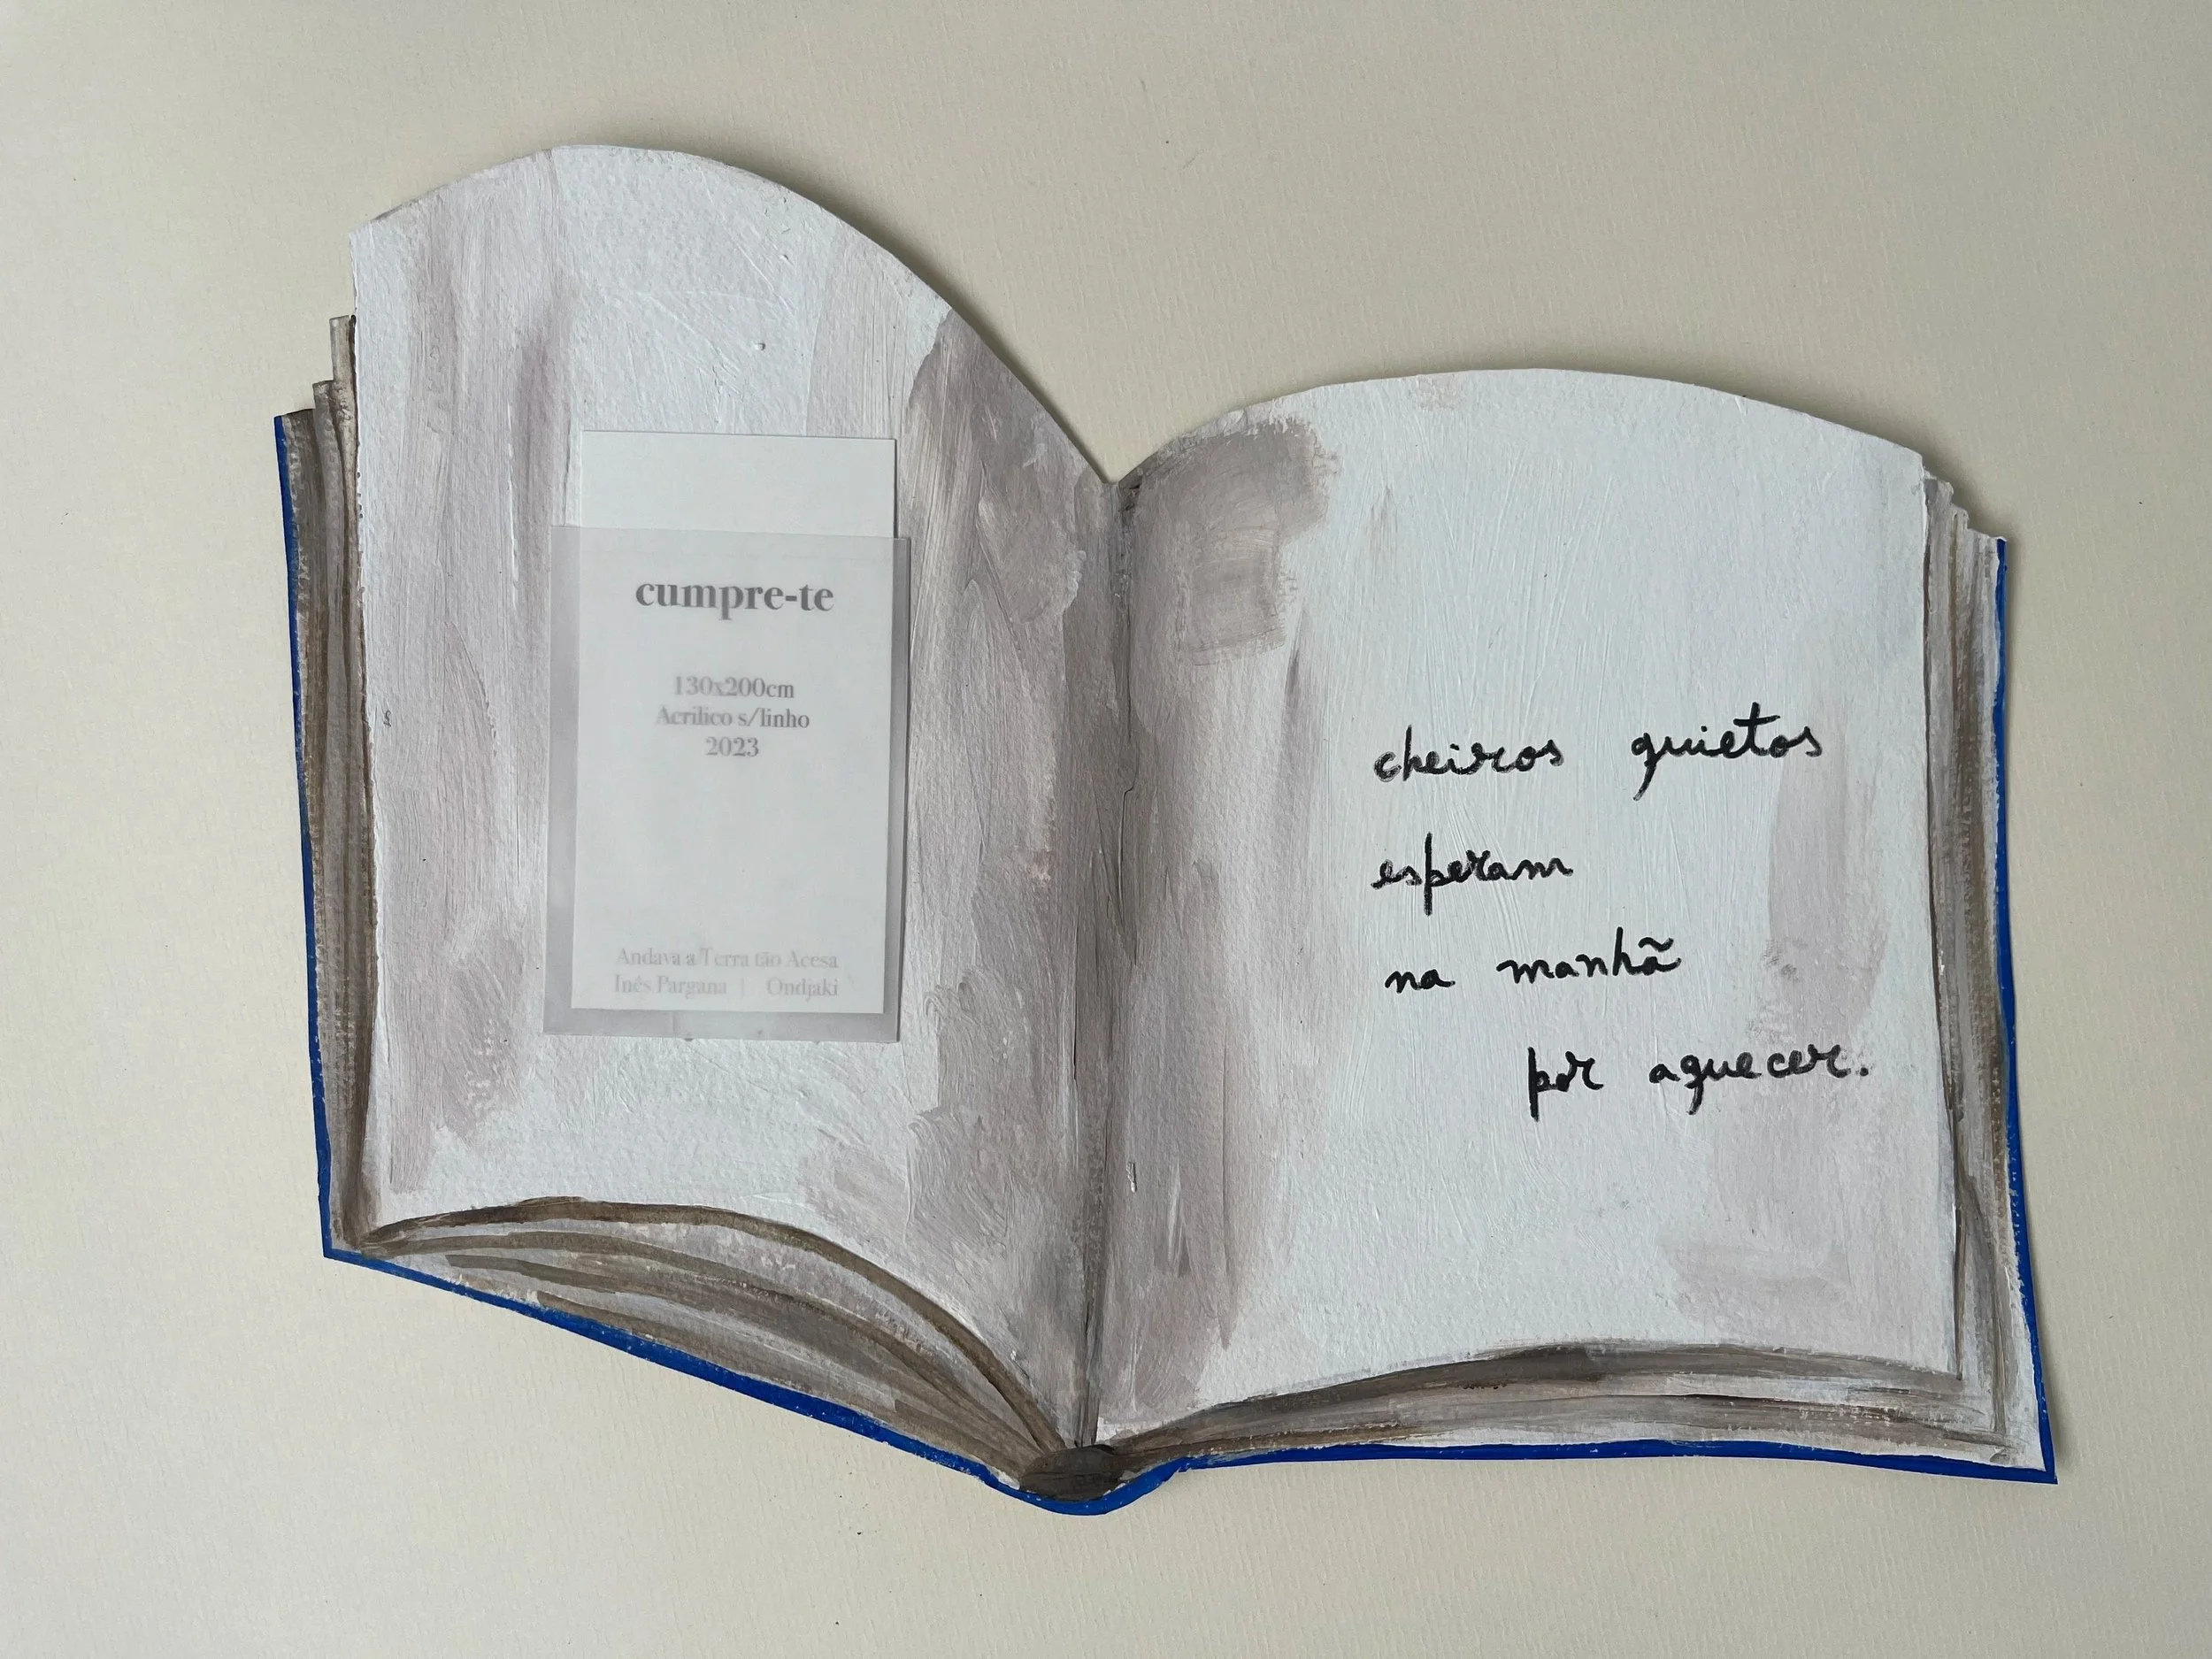 cumpre-te
130x200cm
Acrílico s/linho
2023
Andava a Terra tão Acesa
Inês Pargana | Ondjaki
cheiros quietos
esperam
na manhã
por aquecer.